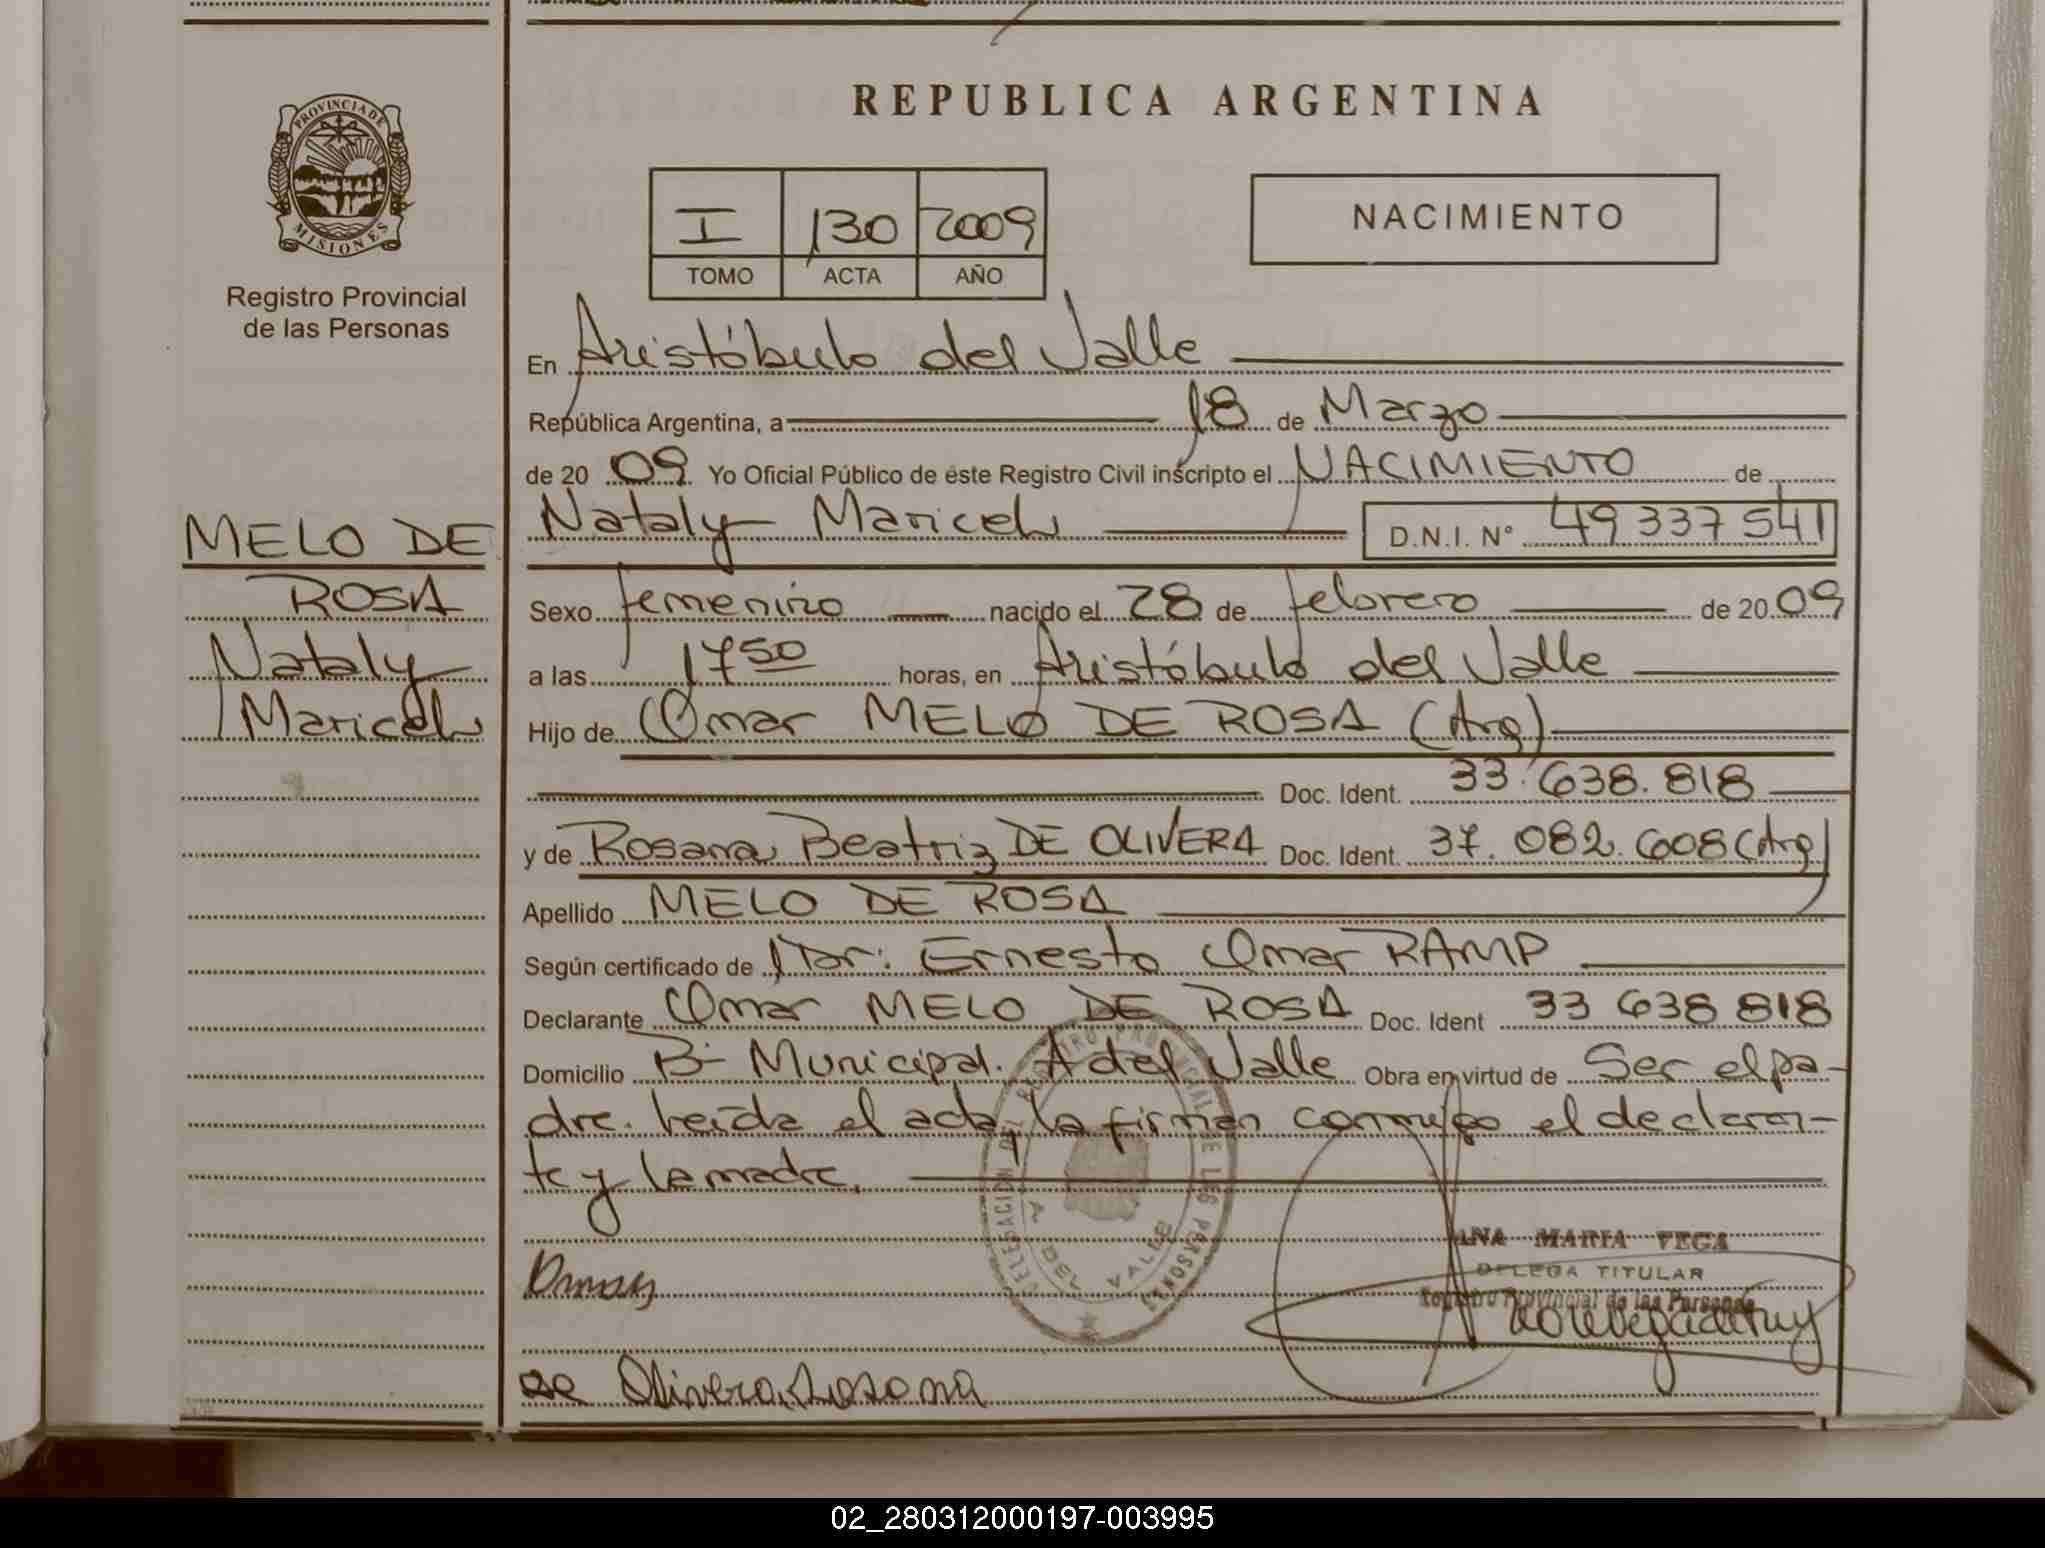 REPUBLICA ARGENTINA
PROVINCIA DE MISIONES
Registro Provincial
de las Personas
I 130 2009
TOMO ACTA AÑO
NACIMIENTO
En Aristóbulo del Valle
República Argentina, a 18 de Marzo
de 20 09 Yo Oficial Público de este Registro Civil inscripto el NACIMIENTO de
Nataly Maricel D.N.I. N° 49 337 541
MELO DE
ROSA
Nataly
Maricel
Sexo femenino nacido el 28 de febrero de 20 09
a las 17 50 horas, en Aristóbulo del Valle
Hijo de Omar MELO DE ROSA (Arg)
Doc. Ident. 33.638.818
y de Rosana Beatriz DE OLIVERA Doc. Ident. 37.082.608 (Arg)
Apellido MELO DE ROSA
Según certificado de Dr. Ernesto Omar RAMP
Declarante Omar MELO DE ROSA Doc. Ident 33 638 818
Domicilio B- Municipal. A del Valle Obra en virtud de Ser el pa-
dre. Leída el acta, la firman conmigo el declaran-
te y la madre.
DELEGACION DEL REGISTRO PROVINCIAL DE LAS PERSONAS
A. DEL VALLE
ANA MARIA VEGA
DELEGA TITULAR
Registro Provincial de las Personas
Omar
de Olivera Rosana
02_280312000197-003995